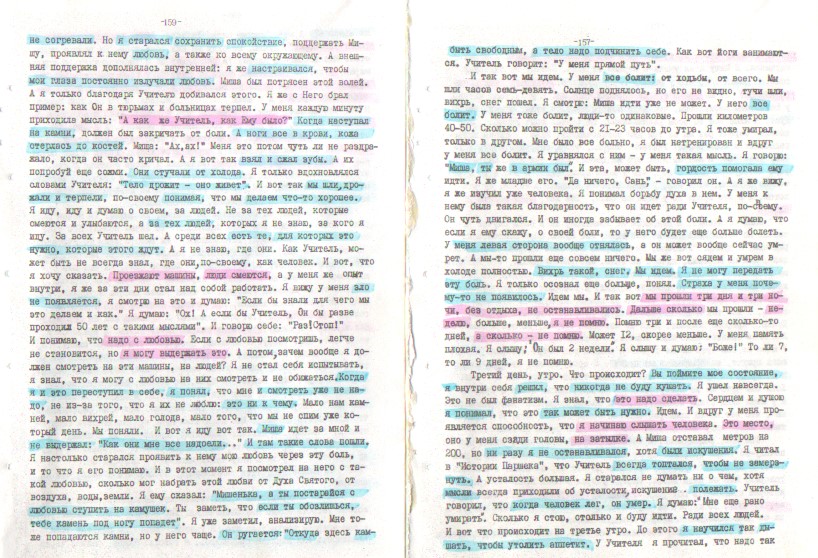 -159-
не согревали. Но я старался сохранить спокойствие, поддержать Ми-
шу, проявлял к нему любовь, а также ко всему окружающему. А внеш-
няя поддержка дополнялась внутренней: я же настраивался, чтобы
мои глаза постоянно излучали любовь. Миша был потрясен этой волей.
А я только благодаря Учителю добивался этого. Я же с Него брал
пример: как Он в тюрьмах и больницах терпел. У меня каждую минуту
приходила мысль: "А как же Учитель, как Ему было?" Когда наступал
на камни, должен был закричать от боли. А ноги все в крови, кожа
стерлась до костей. Миша: "Ах,ах!" Меня это потом чуть ли не раздра-
жало, когда он часто кричал. А я вот так взял и сжал зубы. А их
попробуй еще сожми. Они стучали от холода. Я только вдохновлялся
словами Учителя: "Тело дрожит - оно живет". И вот так мы шли,дро-
жали и терпели, по-своему понимая, что мы делаем что-то хорошее.
Я иду, иду и думаю о своем, за людей. Не за тех людей, которые
смеются и улыбаются, а за тех людей, которых я не знаю, за кого я
иду. За всех Учитель шел. А среди всех есть те, для которых это
нужно, которые этого ждут. А я не знаю, где они. Как Учитель, мо-
жет быть не всегда знал, где они,по-своему, как человек. И вот, что
я хочу сказать. Проезжают машины, люди смеются, а у меня же опыт
внутри, я же за эти дни стал над собой работать. Я вижу у меня зло
не появляется, я смотрю на это и думаю: "Если бы знали для чего мы
это делаем и как." Я думаю: "Ох! А если бы Учитель, Он бы разве
проходил 50 лет с такими мыслями". И говорю себе: "Раз!Стоп!"
И понимаю, что надо с любовью. Если с любовью посмотришь, легче
не становится, но я могу выдержать это. А потом,зачем вообще я до-
лжен смотреть на эти машины, на людей? Я не стал себя испытывать,
я знал, что я могу с любовью на них смотреть и не обижаться.Когда
я и это переступил в себе, я понял, что мне и смотреть уже не на-
до, не из-за того, что я их не люблю: это ни к чему. Мало нам кам-
ней, мало вихрей, мало голода, мало того, что мы не спим уже ко-
торый день. Мы поняли. И вот я иду вот так. Миша идет за мной и
не выдержал: "Как они мне все надоели..." И там такие слова пошли.
Я настолько старался проявить к нему мою любовь через эту боль,
и то что я его понимаю. И в этот момент я посмотрел на него с та-
кой любовью, сколько мог набрать этой любви от Духа Святого, от
воздуха, воды,земли. Я ему сказал: "Мишенька, а ты постарайся с
любовью ступить на камушек. Ты заметь, что если ты обозлишься,
тебе камень под ногу попадет". Я уже заметил, анализирую. Мне то-
же попадаются камни, но у него чаще. Он ругается:"Откуда здесь кам-
-157-
быть свободным, а тело надо подчинить себе. Как вот йоги занимают-
ся. Учитель говорит: "У меня прямой путь".
И так вот мы идем. У меня все болит: от ходьбы, от всего. Мы
шли часов семь-девять. Солнце поднялось, но его не видно, тучи шли,
вихрь, снег пошел. Я смотрю: Миша идти уже не может. У него все
болит. У меня тоже болит, люди-то одинаковые. Прошли километров
40-50. Сколько можно пройти с 21-23 часов до утра. Я тоже умирал,
только в другом. Мне было все больно, я был натренирован и вдруг
у меня все болит. Я уравнялся с ним - у меня такая мысль. Я говорю:
"Миша, ты же в армии был". И эта, может быть, гордость помогала ему
идти. Я же младше его. "Да ничего, Сань," - говорил он. А я же вижу,
я же изучил уже человека. Я понимал борьбу духа в нем. У меня к
нему была такая благодарность, что он идет ради Учителя, по-своему.
Он чуть двигался. И он иногда забывает об этой боли. А я думаю, что
если я ему скажу, о своей боли, то у него будет еще больше болеть.
У меня левая сторона вообще отнялась, а он может вообще сейчас ум-
рет. А мы-то прошли еще совсем ничего. Мы же вот сядем и умрем в
холоде полностью. Вихрь такой, снег. Мы идем. Я не могу передать
эту боль. Я только осознал еще больше, понял. Страха у меня поче-
му-то не появилось. Идем мы. И так вот мы прошли три дня и три но-
чи, без отдыха, не останавливались. Дальше сколько мы прошли - не-
делю, больше, меньше,я не помню. Помню три и после еще сколько-то
дней, а сколько - не помню. Может 12, скорее меньше. У меня память
плохая. Я слышу; Он был 2 недели. Я слышу и думаю: "Боже!" То ли 7,
то ли 9 дней, я не помню.
Третий день, утро. Что происходит? Вы поймите мое состояние,
я внутри себя решил, что никогда не буду кушать. Я ушел навсегда.
Это не был фанатизм. Я знал, что это надо сделать. Сердцем и душою
я понимал, что это так может быть нужно. Идем. И вдруг у меня про-
является способность, что я начинаю слышать человека. Это место,
оно у меня сзади головы, на затылке. А Миша отставал метров на
200, но ни разу я не останавливался, хотя были искушения. Я читал
в "Истории Паршека", что Учитель всегда топтался, чтобы не замерз-
нуть. А усталость большая. Я старался не думать ни о чем, хотя
мысли всегда приходили об усталости,искушения - полежать. Учитель
говорил, что когда человек лег, он умер. Я думаю:"Мне еще рано
умирать". Сколько я стою, столько и буду идти. Ради всех людей.
И вот что происходит на третье утро. До этого я научился так ды-
шать, чтобы утолить аппетит. У Учителя я прочитал, что надо так